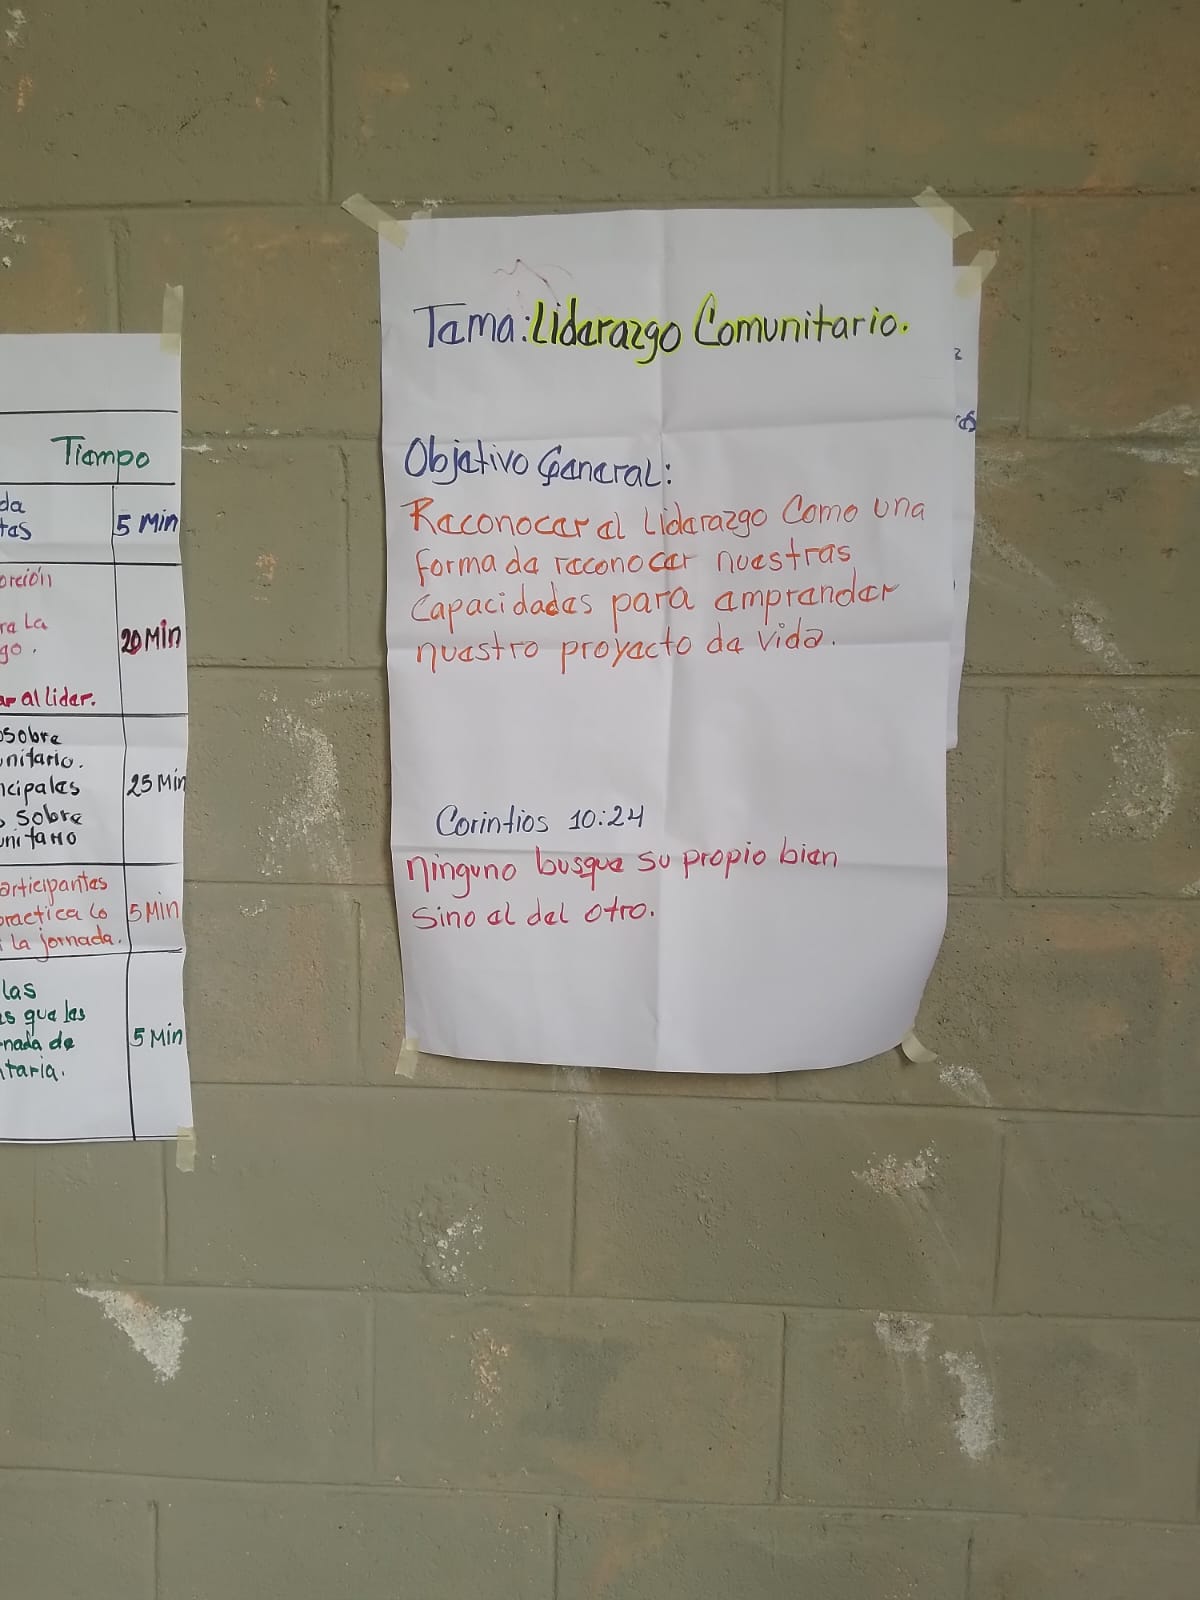 Tiempo
da
tas
5 Min
orción
ra La
go.
ar al lider.
20 Min
sobre
unitario.
ncipales
s sobre
unitario
25 Min
articipantes
practica lo
la jornada.
5 Min
las
as que las
nada de
taria.
5 Min
Tema: Liderazgo Comunitario.
Objetivo General:
Reconocer el Liderazgo Como una
forma de reconocer nuestras
Capacidades para emprender
nuestro proyecto de vida.
Corintios 10:24
Ninguno busque su propio bien
Sino el del otro.